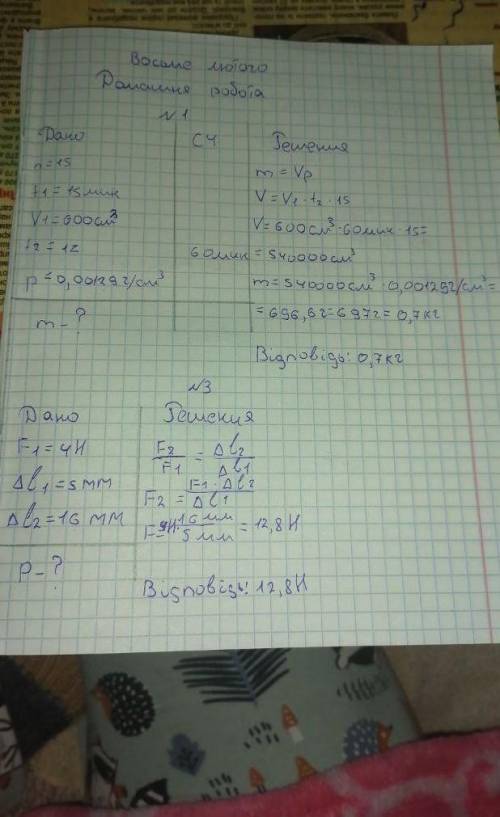 Восьме лютого
Домашня робота
№1
Дано
СЧ
Решения
n=15
t1=15мин
V1=600см³
t2=1г
60мин
ρ=0,00129г/см³
m-?
m=Vρ
V=V1·t2·15
V=600см³·60мин·15=
=540000см³
m=540000см³·0,00129г/см³=
=696,6г=697г=0,7кг
Відповідь: 0,7кг
№3
Дано
Решения
F1=4Н
Δl1=5мм
Δl2=16мм
P-?
F2/F1=Δl2/Δl1
F2=F1·Δl2/Δl1
16мм/5мм=12,8Н
Відповідь: 12,8Н